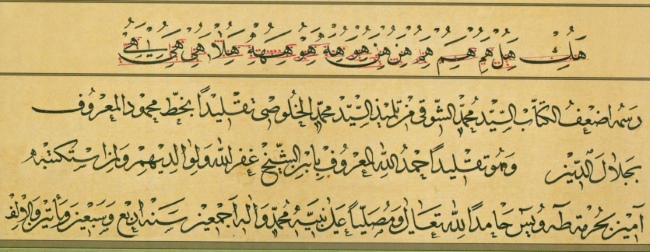 هك هل هم هم هم هن هن هو هه هو هلا هى هى
رسمه اضعف الكتاب السيد محمد الشوقى من تلميذ السيد محمد الخلوصى تقليداً بخط محمود المعروف
بجلال الدين وهو تقليداً حمد الله المعروف بابن الشيخ غفر الله ولوالديهم ولمن استكتبه
آمين بحرمة طه ويس حامداً لله تعالى ومصلياً على نبيه محمد وآله اجمعين سنه اربع وسبعين ومأتين والالف